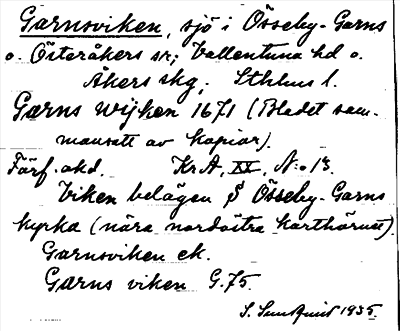 Garnsviken, sjö i Össeby-Garns
o. Österåkers sr; Vallentuna hd o.
Åkers skg; Sthlms l.
Garns Wijken 1671 (Bladet sam-
mansatt av kopior).
Färf. akd. Kr.A, XX, N:o 13.
Viken belägen S Össeby-Garns
kyrka (nära nordöstra karthörnet).
Garnsviken ek.
Garns viken G.75.
S. Sundquist 1935.